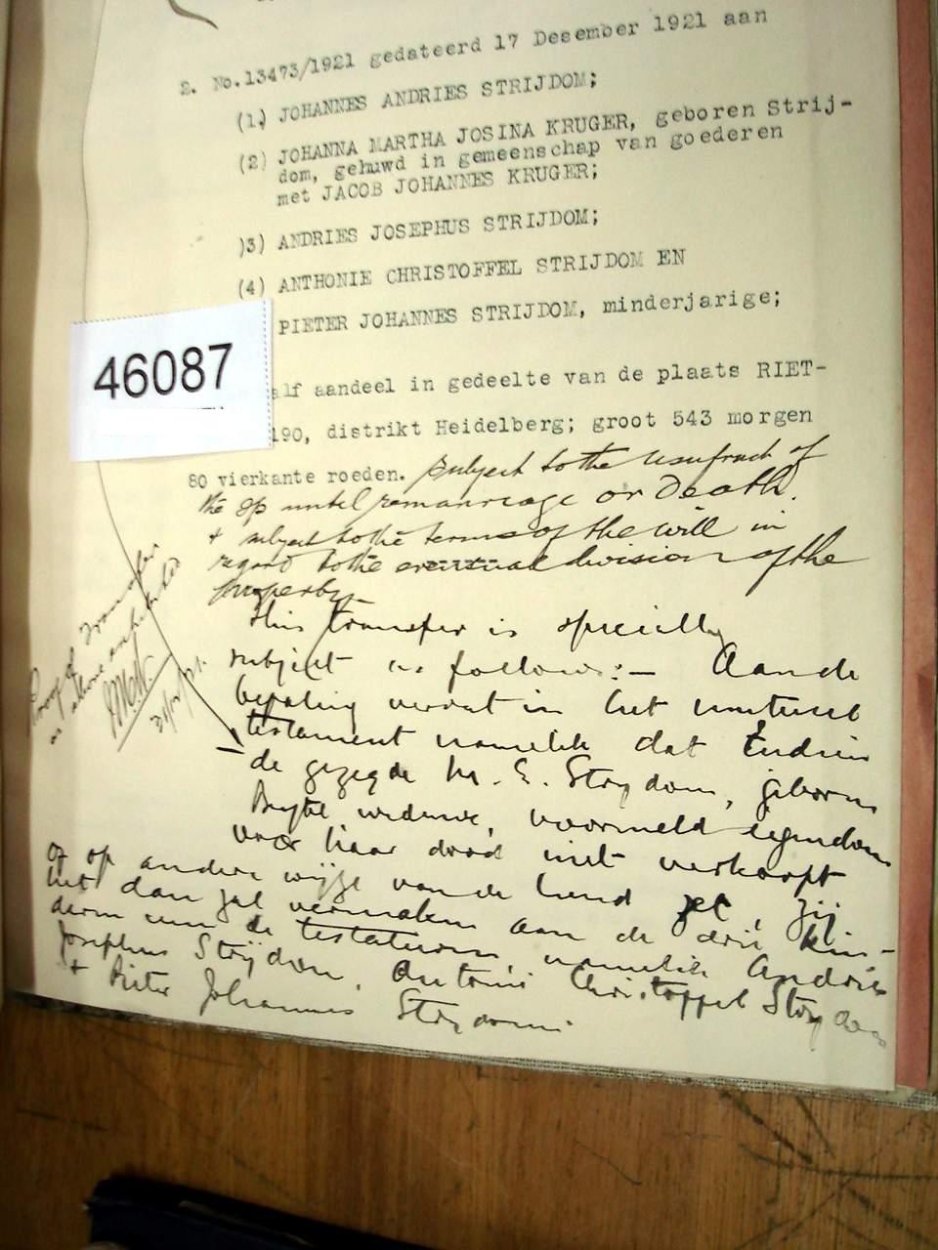 2. No.13473/1921 gedateerd 17 Desember 1921 aan
(1) JOHANNES ANDRIES STRIJDOM;
(2) JOHANNA MARTHA JOSINA KRUGER, geboren Strij-
dom, gehuwd in gemeenschap van goederen
met JACOB JOHANNES KRUGER;
)3) ANDRIES JOSEPHUS STRIJDOM;
(4) ANTHONIE CHRISTOFFEL STRIJDOM EN
PIETER JOHANNES STRIJDOM, minderjarige;
46087
alf aandeel in gedeelte van de plaats RIET-
190, distrikt Heidelberg; groot 543 morgen
80 vierkante roeden. subject to the usufruct of
the sp until remarriage or Death.
+ subject to the terms of the will in
regard to the eventual division of the
property.
This transfer is specially
subject as follows:- Aan de
bepaling vervat in het mutueel
testament namelik dat Indien
de gezegde M. E. Strydom, geboren
weduwe, voormeld eigendom
voor haar dood niet verkoopt
of op andere wijze van de hand zet, zij
het dan zal vermaken aan de drie kin-
deren van de testateuren, namelik Andries
Josephus Strijdom, Antonie Christoffel Strydom
+ Pieter Johannes Strydom.
Proof of Transfer